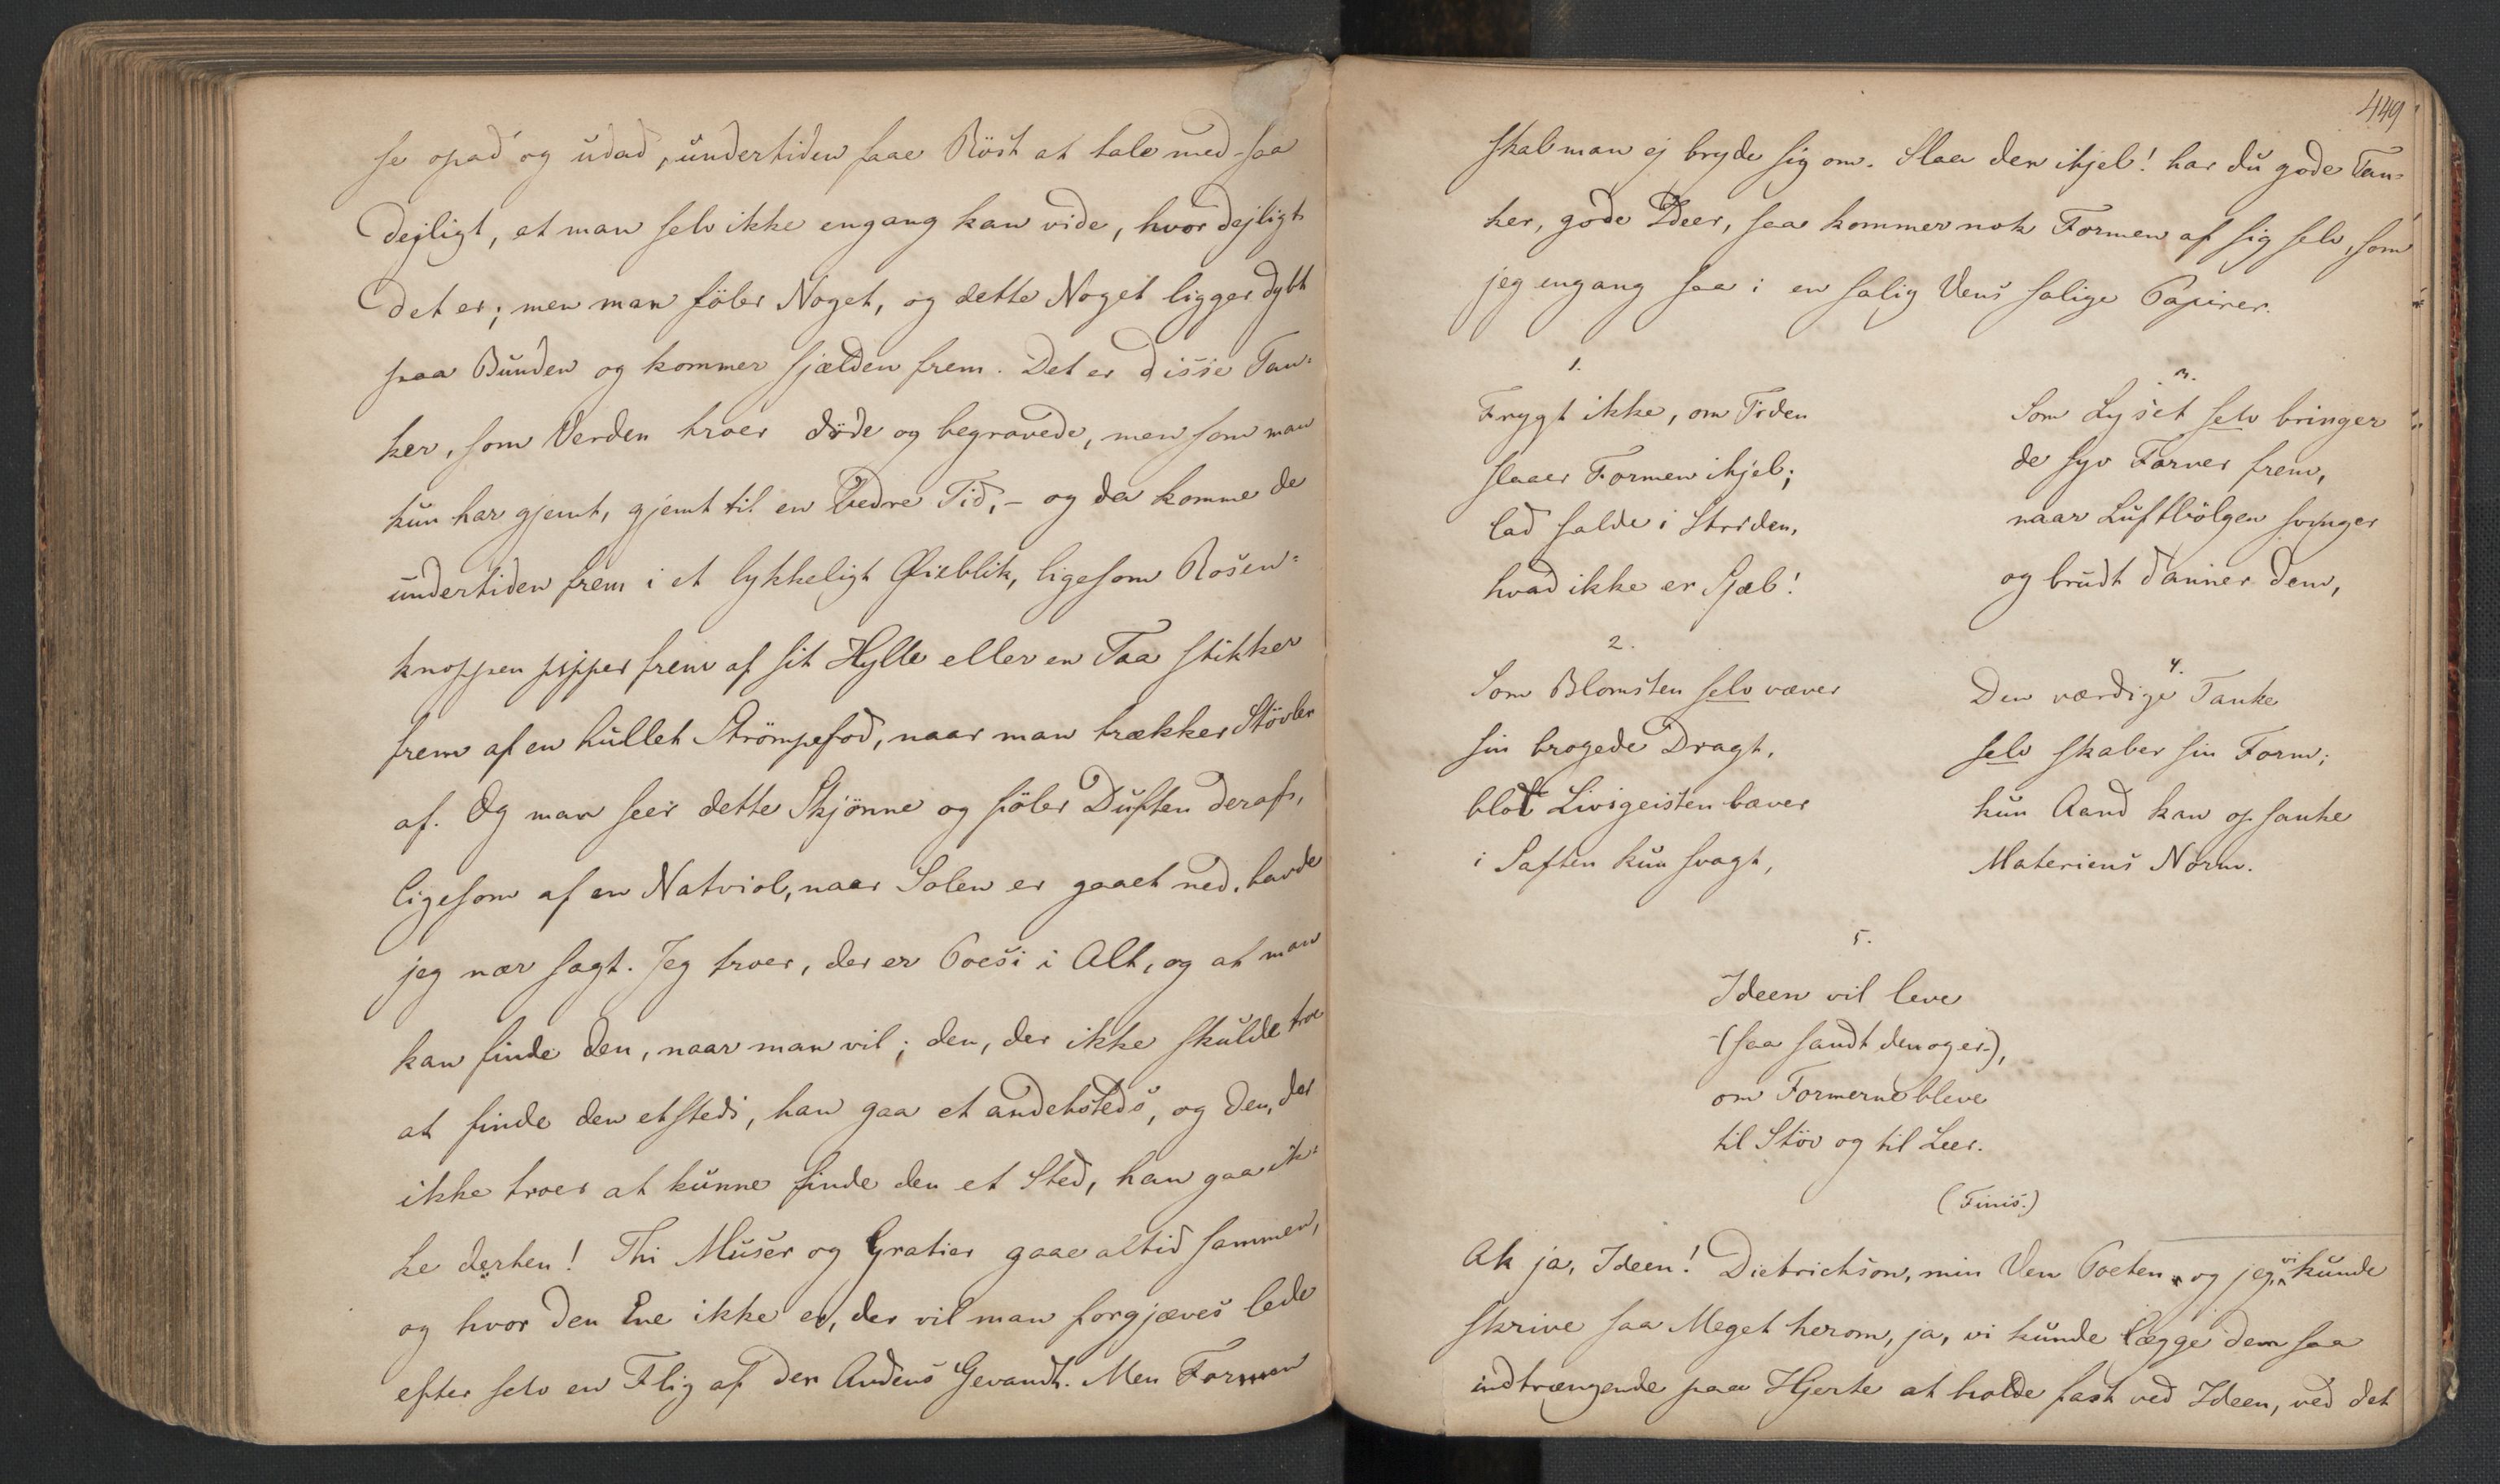 se opad og udad, undertiden faae Röst at tale med – saa
dejligt, at man selv ikke engang kan vide, hvor dejligt
det er; men man föler Noget, og dette Noget ligger dybt
paa Bunden og kommer sjælden frem. Det er disse Tan-
ker, som Verden troer döde og begravede, men som man
kun har gjemt, gjemt til en bedre Tid, – og da komme de
undertiden frem i et lykkeligt Øieblik, ligesom Rosen-
knoppen pipper frem af sit Hylle eller en Taa stikker
frem af en hullet Strömpefod, naar man trækker Stövler
af. Og man seer dette Skjönne og föler Duften deraf,
ligesom af en Natviol, naar Solen er gaaet ned, havde
jeg nær sagt. Jeg troer, der er Poesi i Alt, og at man
kan finde den, naar man vil; den, der ikke skulde troe
at finde den etsteds, han gaa et andetsteds, og den, der
ikke troer at kunne finde den et Sted, han gaa ik-
ke derhen! Thi Muser og Gratier gaae altid sammen,
og hvor den Ene ikke er, der vil man forgjæves lede
efter selv en Flig af den Andens Gevandt. Men Formen
449
skal man ej bryde sig om. Slaa den ihjel! har du gode Tan-
ker, gode Ideer, saa kommer nok Formen af sig selv, som
jeg engang saa i en salig Vens salige Papirer.
1.
Frygt ikke, om Tiden
slaaer Formen ihjel;
lad falde i Striden,
hvad ikke er Sjæl!
2.
Som Blomsten selv væver
sin brogede Dragt,
blot Livsgeisten bæver
i Saften kun svagt,
3.
Som Lyset selv bringer
de syv Farver frem,
naar Luftbölgen svinger
og brudt danner dem,
4.
Den værdige Tanke
selv skaber sin Form;
kun Aand kan opsanke
Materiens Norm.
5.
Ideen vil leve
(saa sandt den og er),
om Formerne bleve
til Stöv og til Leer.
(Finis.)
Ak ja, Ideen! Dietrichson, min Ven Poeten og jeg, vi kunde
skrive saa Meget herom, ja, vi kunde lægge dem saa
indtrængende paa Hjerte at holde fast ved Ideen, ved det